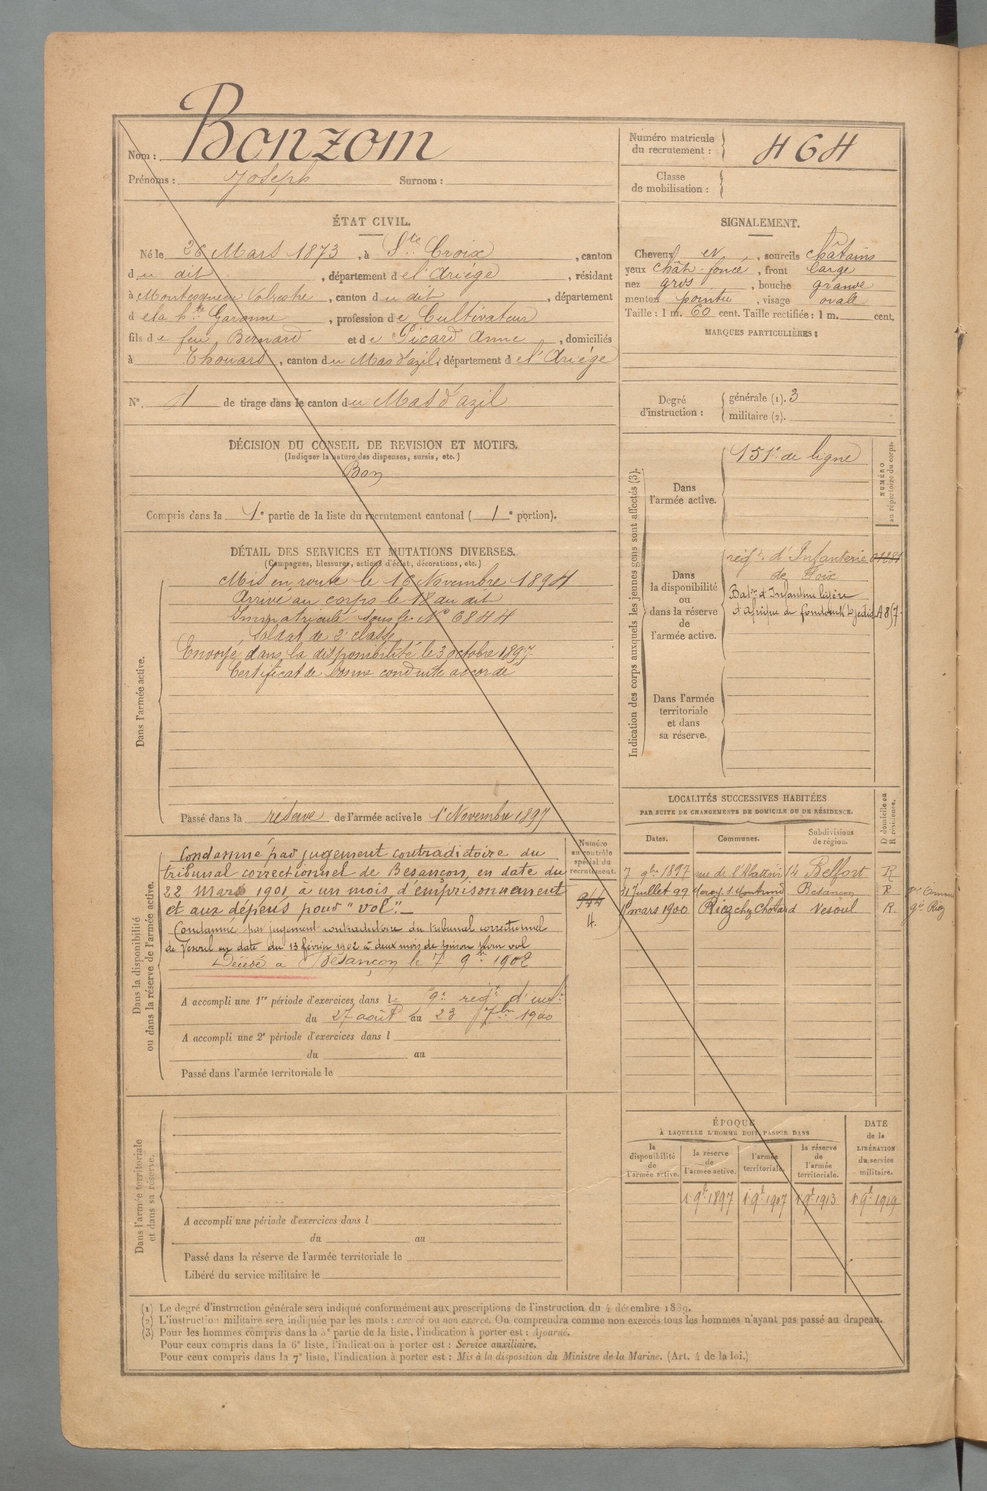 Nom : Bonzom
Prénoms : Joseph Surnom :
Numéro matricule du recrutement : 464
Classe de mobilisation :
ÉTAT CIVIL.
Né le 26 Mars 1873, à Ste Croix, canton
du dit, département de l'Ariège, résidant
à Montesquieu Volvestre, canton du dit, département
de la hte Garonne, profession de Cultivateur
fils de feu Bernard et de Picard Anne, domiciliés
à Thouars, canton du Mas d'azil, département de l'Ariège
N° 1 de tirage dans le canton du Mas d'azil
DÉCISION DU CONSEIL DE REVISION ET MOTIFS.
(Indiquer la nature des dispenses, sursis, etc.)
Bon
Compris dans la 1e partie de la liste du recrutement cantonal ( 1e portion).
SIGNALEMENT.
Cheveux et, sourcils châtains
yeux chât. foncé, front large
nez gros, bouche grande
menton pointu, visage ovale
Taille : 1 m. 60 cent. Taille rectifiée : 1 m. cent.
MARQUES PARTICULIÈRES :
Degré d'instruction : générale (1). 3
militaire (2).
DÉTAIL DES SERVICES ET MUTATIONS DIVERSES.
(Campagnes, blessures, actions d'éclat, décorations, etc.)
Dans l'armée active.
Mis en route le 16 Novembre 1894
Arrivé au corps le 18 du dit
Immatriculé sous le N° 6844
Soldat de 2e classe
Envoyé dans la disponibilité le 3 octobre 1897.
Certificat de bonne conduite accordé
Passé dans la réserve de l'armée active le 1er Novembre 1897
Indication des corps auxquels les jeunes gens sont affectés (3).
NUMÉRO au répertoire du corps.
Dans l'armée active.
151e de ligne
Dans la disponibilité ou dans la réserve de l'armée active.
régt. d'Infanterie
de Foix
Batn d'Infanterie légère
d'Afrique
Dans l'armée territoriale et dans sa réserve.
Dans la disponibilité ou dans la réserve de l'armée active.
Condamné par jugement contradictoire du
tribunal correctionnel de Besançon, en date du
22 Mars 1901 à un mois d'emprisonnement
et aux dépens pour "vol".
Condamné par jugement contradictoire du tribunal correctionnel
de Vesoul en date du 13 février 1902 à deux mois de prison pour vol
Décédé à Besançon le 7 9bre 1902
Numéro au contrôle spécial du recrutement.
944
A accompli une 1re période d'exercices dans le 9e régt d'inft
du 27 août au 23 7bre 1900
A accompli une 2e période d'exercices dans l
du au
Passé dans l'armée territoriale le
LOCALITÉS SUCCESSIVES HABITÉES
PAR SUITE DE CHANGEMENTS DE DOMICILE OU DE RÉSIDENCE.
Dates. Communes. Subdivisions de région. D domicile ou R résidence.
7 9bre 1897 rue de l'Abattoir 14 Belfort R
Juillet 99 Besançon R
1 mars 1900 Rioz chez Vesoul R.
Dans l'armée territoriale et dans sa réserve.
A accompli une période d'exercices dans l
du au
Passé dans la réserve de l'armée territoriale le
Libéré du service militaire le
ÉPOQUE
À LAQUELLE L'HOMME DOIT PASSER DANS
la disponibilité de l'armée active. la réserve de l'armée active. l'armée territoriale. la réserve de l'armée territoriale.
DATE de la LIBÉRATION du service militaire.
1 9bre 1897 1 9bre 1907 1 9bre 1913 1 9bre 1919
(1) Le degré d'instruction générale sera indiqué conformément aux prescriptions de l'instruction du 4 décembre 1889.
(2) L'instruction militaire sera indiquée par les mots : exercé ou non exercé. On comprendra comme non exercés tous les hommes n'ayant pas passé au drapeau.
(3) Pour les hommes compris dans la 5e partie de la liste, l'indication à porter est : Ajourné.
Pour ceux compris dans la 6e liste, l'indication à porter est : Service auxiliaire.
Pour ceux compris dans la 7e liste, l'indication à porter est : Mis à la disposition du Ministre de la Marine. (Art. 4 de la loi.)